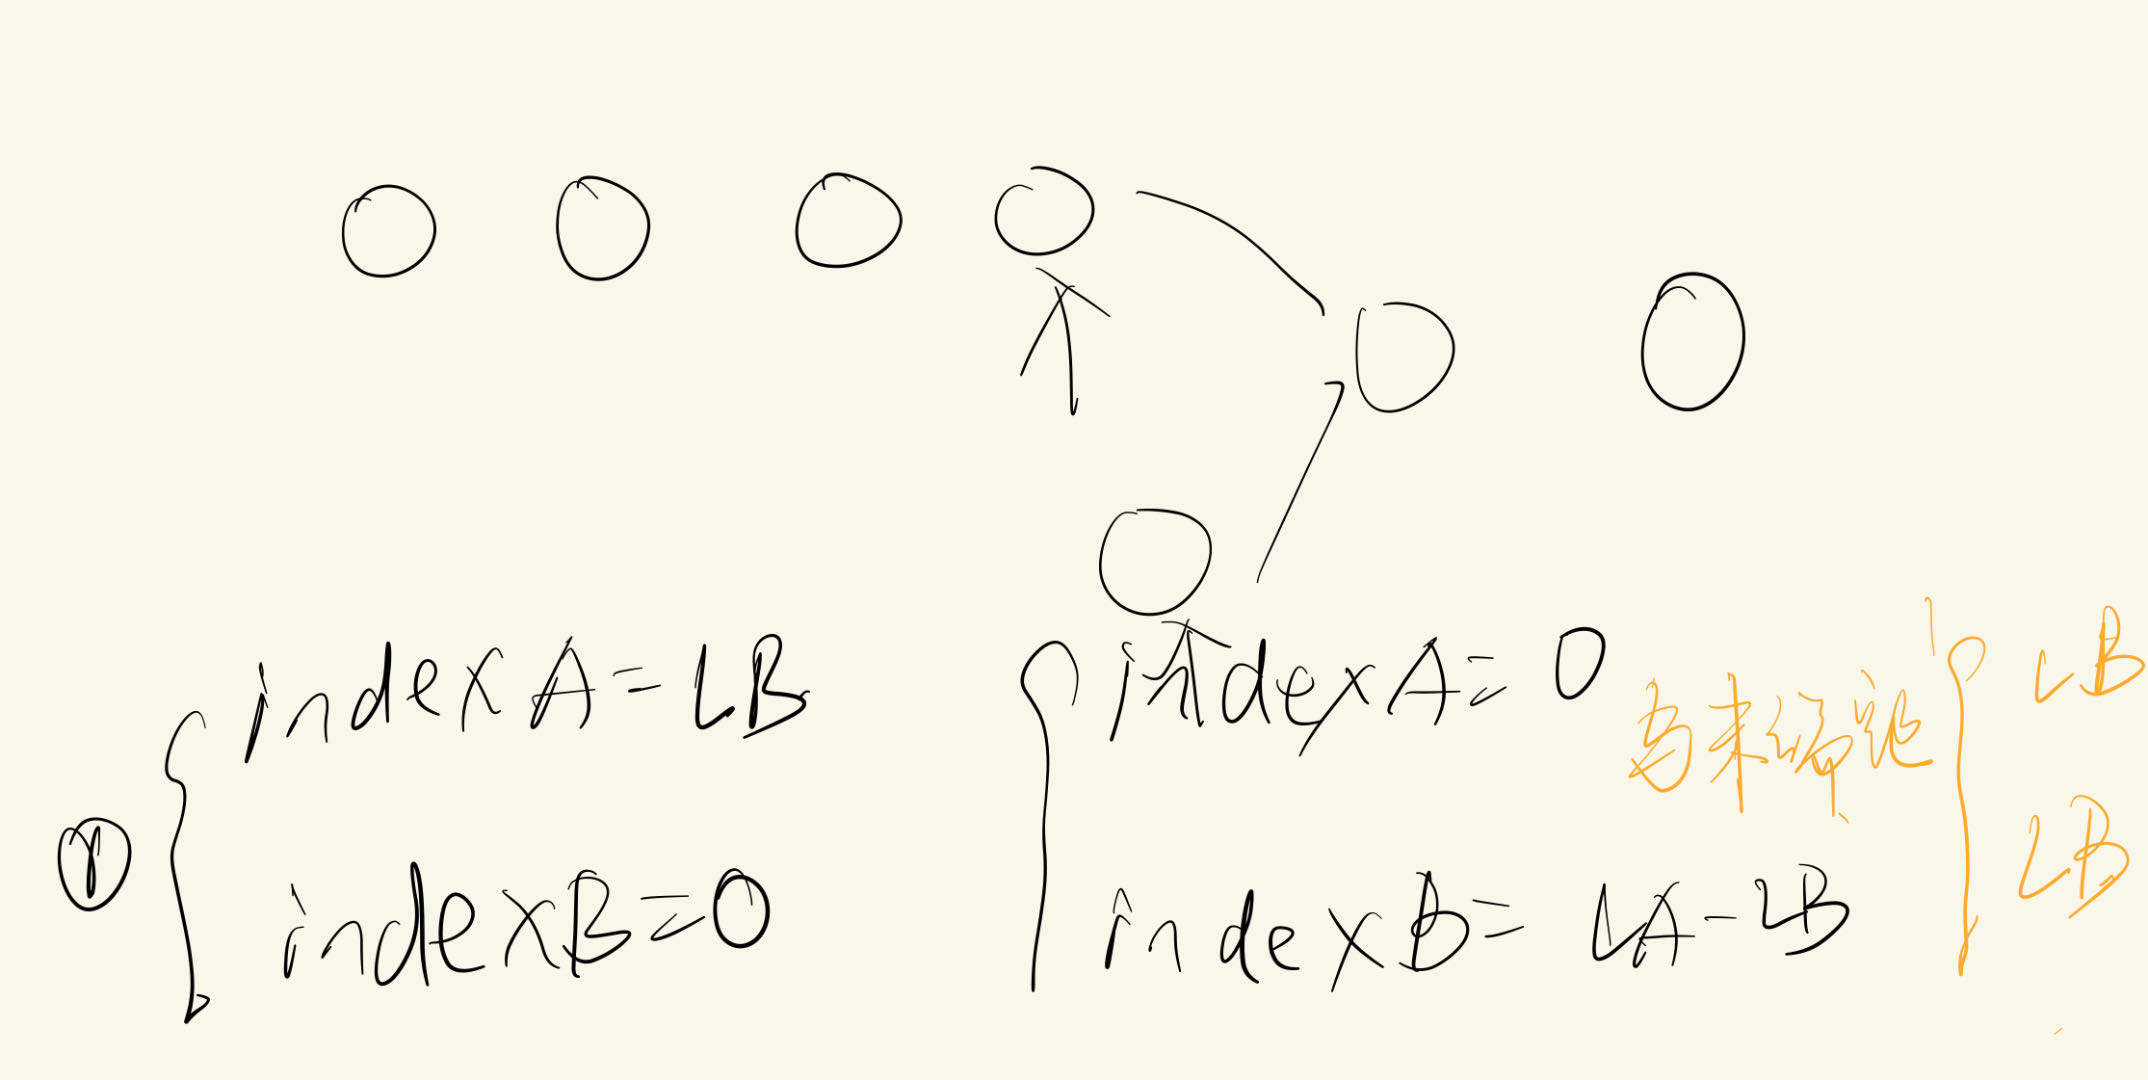 ①
indexA=LB
indexB=0
indexA=0
indexB=LA-LB
LB
LB